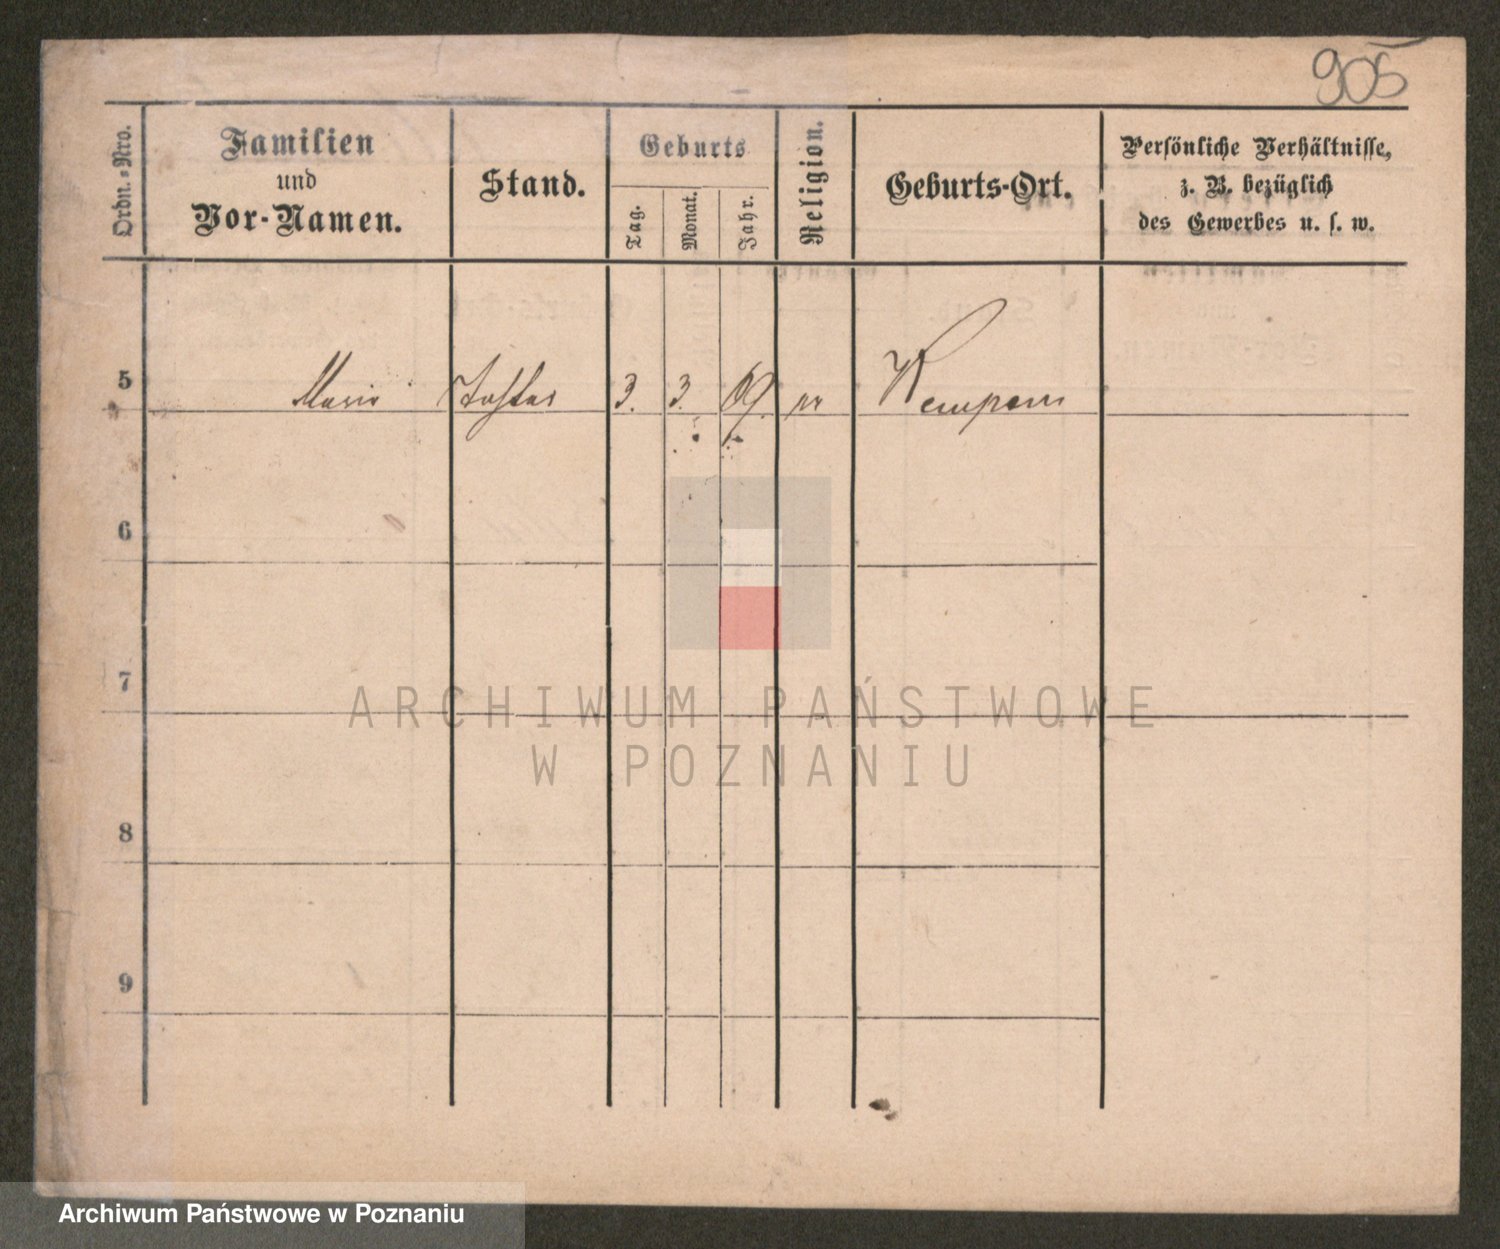 905
Ordn.-Nro.
Familien
und
Vor-Namen.
Stand.
Geburts
Tag.
Monat.
Jahr.
Religion.
Geburts-Ort.
Persönliche Verhältnisse,
z. B. bezüglich
des Gewerbes u. s. w.
5 Marie Tochter 3. 3. 69. Kempen
6
7
ARCHIWUM PAŃSTWOWE
W POZNANIU
8
9
Archiwum Państwowe w Poznaniu